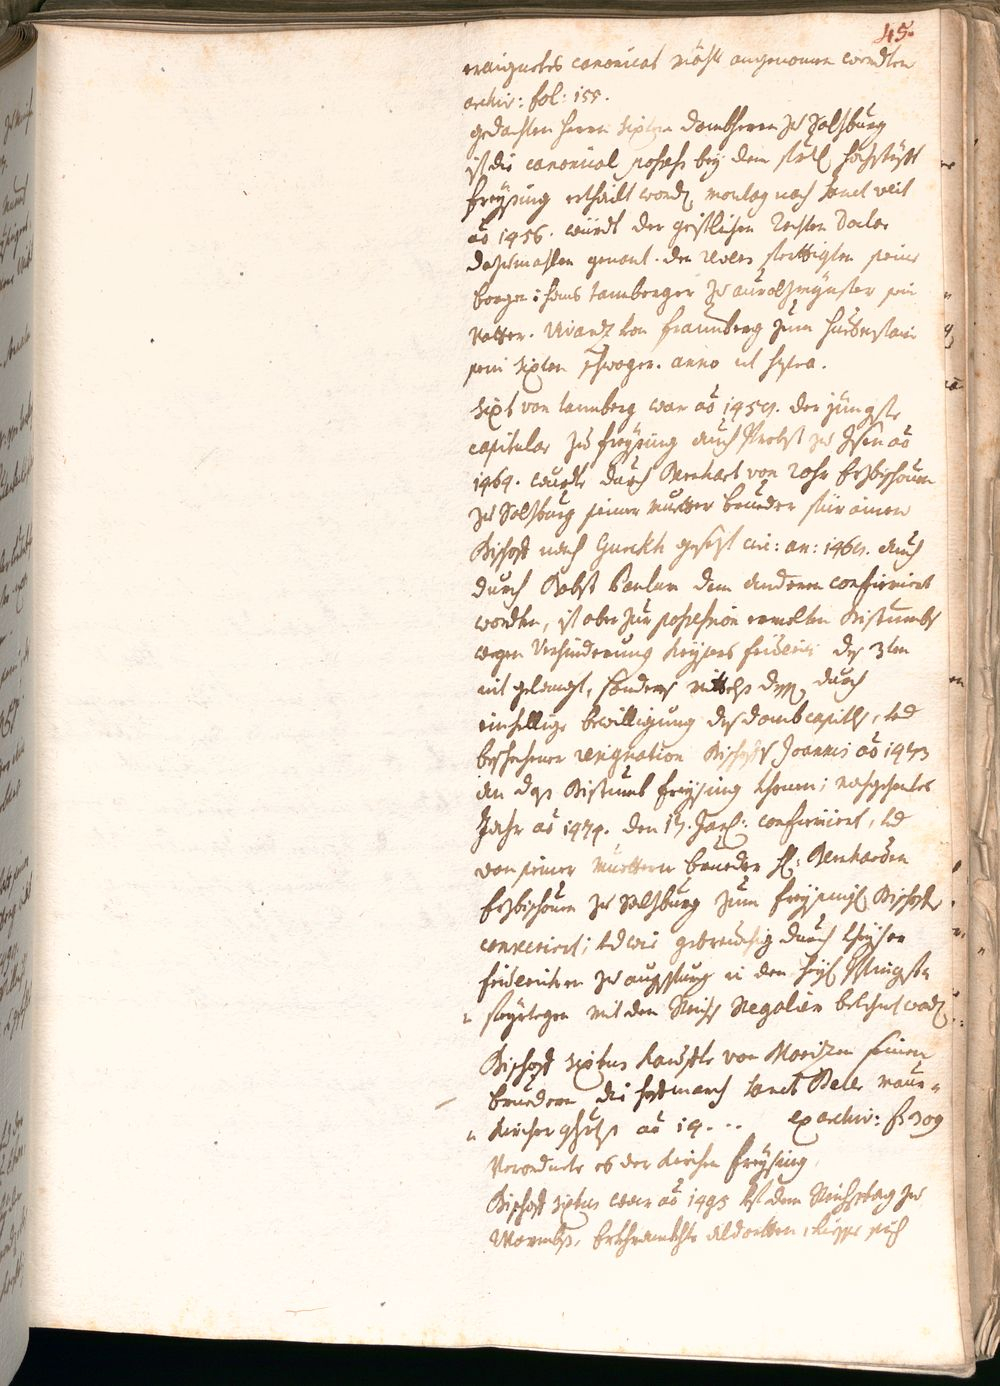 45.
ereignetes canonicat nicht angenomen worden
archiv: fol: 155.
gedachten Herrn Sixten dombherrn zu Salzburg
ist die canonical possess bey dem Hochstüfft
Freysing ertheilt word. montag nach Sanct Veit
ao 1456. würdt der geistlichen Rechten Doctor
dazumahlen genant. der
borgen: Hans tamberger zu aurolzmünster sein
Vatter. Vivianz von Fraunberg zum
sein Sixten schwager. anno ut supra.
Sixt von tannberg war ao 1459. der jüngste
capitular zu Freysing auch Probst zu Isen ao
1469. wurdte durch Bernhart von Rohr Erzbischouen
zu Salzburg seiner Muetter brueder für einen
Bischoff nach Gurckh gesezt an: 1469. auch
durch Pabst Paulum dem anderen confirmirt
worden, ist aber zur possession ermelten Bistumbs
wegen Verhinderung Keysers friderici des 3ten
nit gelangt, sondern durch
einhellige bewilligung des dombcapitls, und
beschehener resignation Bischoffs Joannis ao 1473
an das Bistumb Freysing khomen; nachgehentes
Jahr ao 1474. den 17. Jan: confirmirt, und
von seiner Muettern brueder H: Bernharden
Erzbischouen zu Salzburg zum Freysing. Bischoff
consecrirt; und wie gebreuchig durch Kheyser
friderichen zu augspurg in den heyl. Pfingst
feyrtagen mit den Reichs Regalien belehnt word.
Bischoff Sixtus kauffte von Morizen seinem
bruedern die hofmarch Sanct Peter
Kirchen gschloss ao 14... ex archiv: f: 309
Verordnete es der Kirchen Freysing.
Bischoff Sixtus war ao 1495 auf dem Reichstag zu
Wormbs, erkhranckhte aldorten, liesse sich